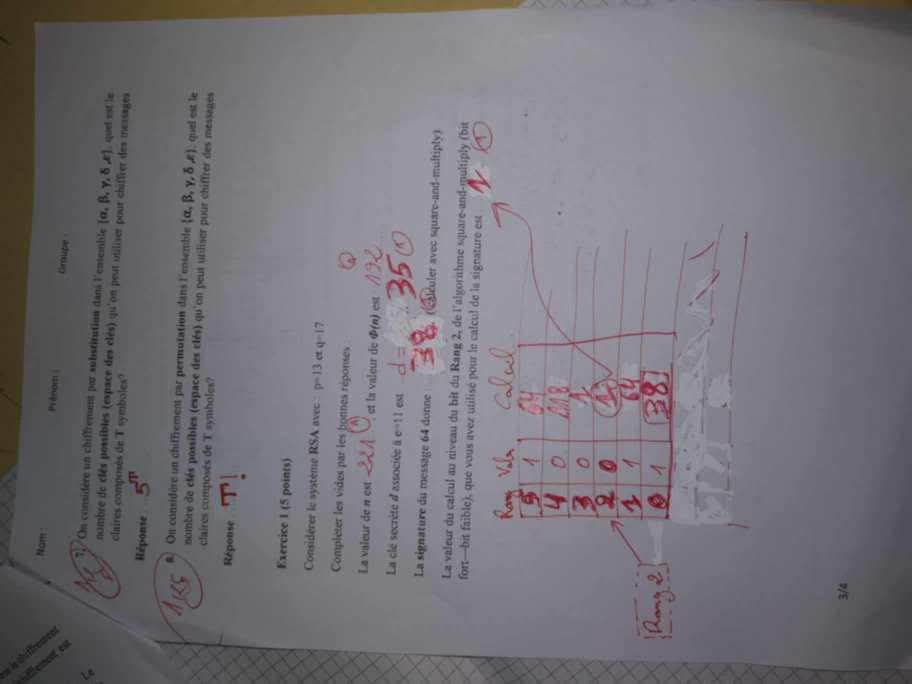 Nom :
Prénom :
Groupe :
7. On considère un chiffrement par substitution dans l'ensemble {α, β, γ, δ ,ε}, quel est le
nombre de clés possibles (espace des clés) qu'on peut utiliser pour chiffrer des messages
claires composés de T symboles?
Réponse : 5^T
8. On considère un chiffrement par permutation dans l'ensemble {α, β, γ, δ ,ε}, quel est le
nombre de clés possibles (espace des clés) qu'on peut utiliser pour chiffrer des messages
claires composés de T symboles?
Réponse T!
Exercice 1 (5 points)
Considérer le système RSA avec : p=13 et q=17
Compléter les vides par les bonnes réponses
La valeur de n est 221 ① et la valeur de Φ(n) est 192
La clé secrète d associée à e=11 est d = 35 ①
La signature du message 64 donne 38 (calculer avec square-and-multiply)
La valeur du calcul au niveau du bit du Rang 2, de l'algorithme square-and-multiply (bit
fort—bit faible), que vous avez utilisé pour le calcul de la signature est 1 ①
Rang Valu Calcul
5 1 64
4 0 118
3 0 1
2 0 1
1 1 64
0 1 38
Rang 2
3/4